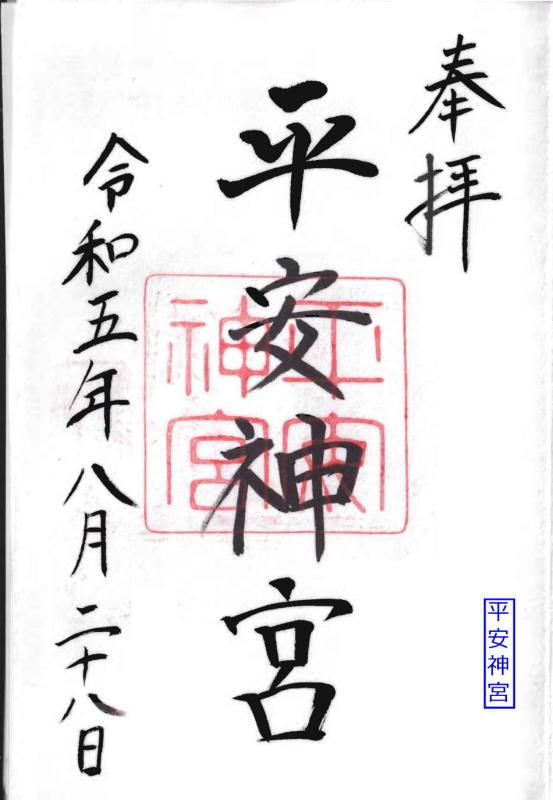 奉拝
平安神宮
平安
神宮
令和五年八月二十八日
平安神宮